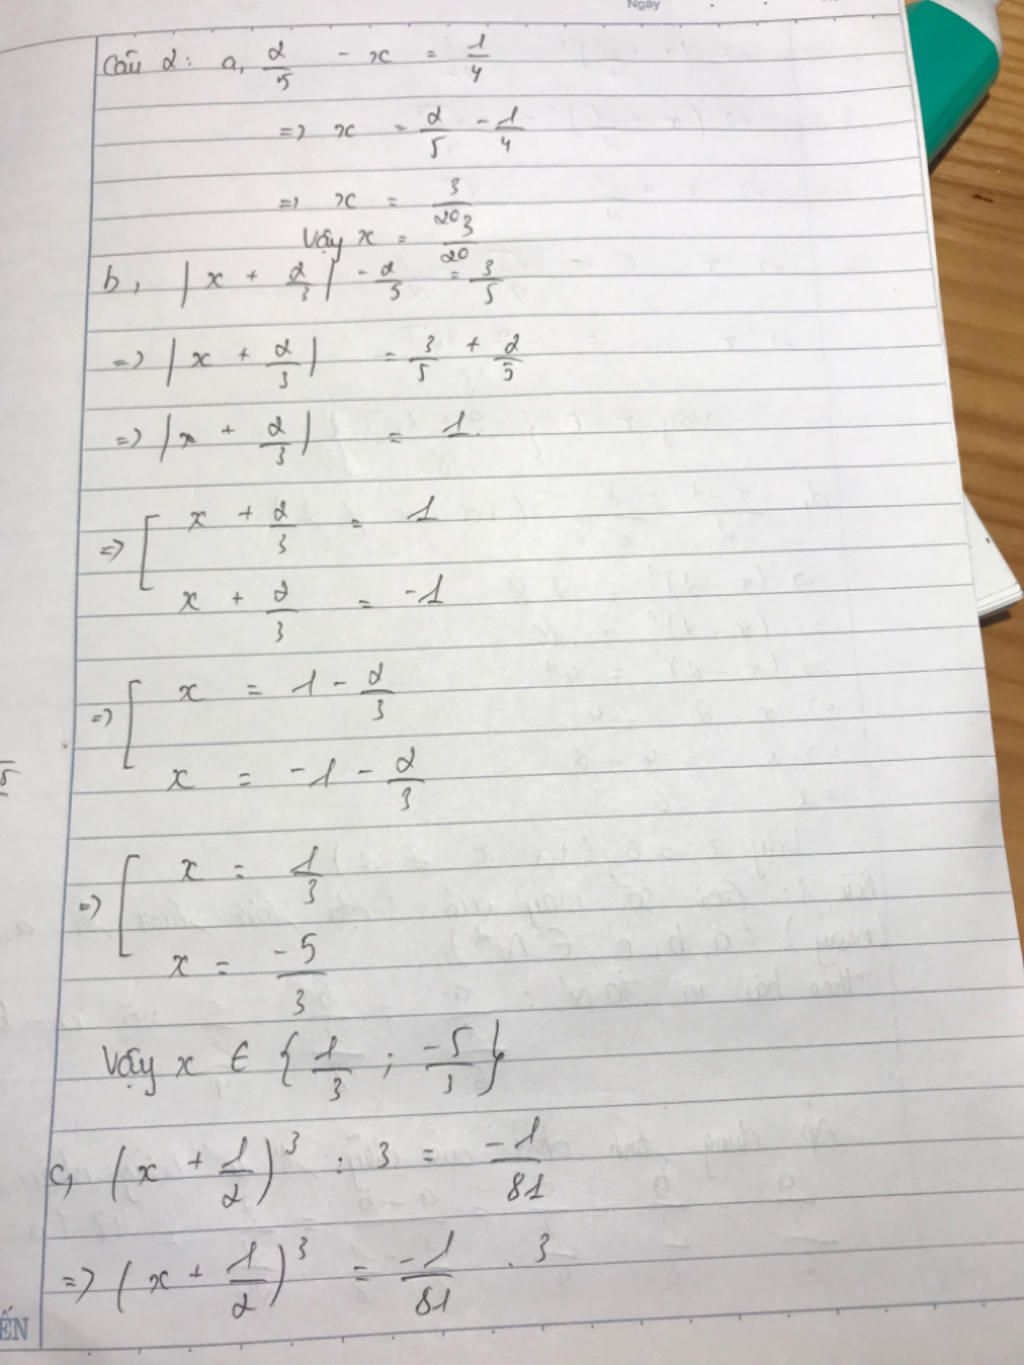 Ngày
Câu 2: a, 2/5 - x = 1/4
=> x = 2/5 - 1/4
=> x = 3/20
Vậy x = 3/20
b, |x + 2/3| - 2/5 = 3/5
=> |x + 2/3| = 3/5 + 2/5
=> |x + 2/3| = 1
=> [ x + 2/3 = 1
x + 2/3 = -1
=> [ x = 1 - 2/3
x = -1 - 2/3
=> [ x = 1/3
x = -5/3
Vậy x ∈ {1/3 ; -5/3}
c, (x + 1/2)³ : 3 = -1/81
=> (x + 1/2)³ = -1/81 . 3
ẾN